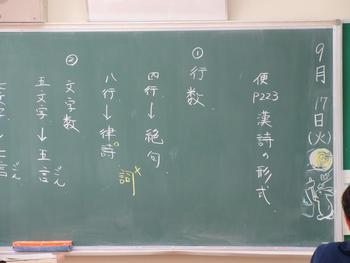 9月17日(火)
便P223 漢詩の形式
①行数
四行→絶句
八行→律詩
詞×
②文字数
五文字→五言
ごん
七言
ごん